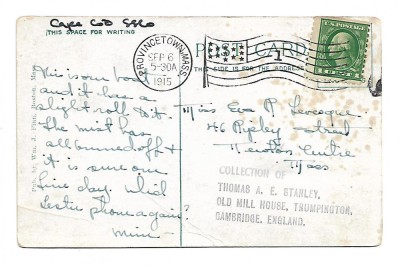 Cape Cod
THIS SPACE FOR WRITING
POST CARD
THIS SIDE IS FOR THE ADDRESS
PROVINCETOWN, MASS.
SEP 6
5-30A
1915
1
U.S. POSTAGE
This is our boat
and it has a
slight roll to it.
The mist has
all burned off &
it is sure one
fine day. Did
Lester phone again?
Minn -
Miss Eva P.
46 Ripley Street
Newton Centre
Mass
COLLECTION OF
THOMAS A. E. STANLEY,
OLD MILL HOUSE, TRUMPINGTON,
CAMBRIDGE. ENGLAND.